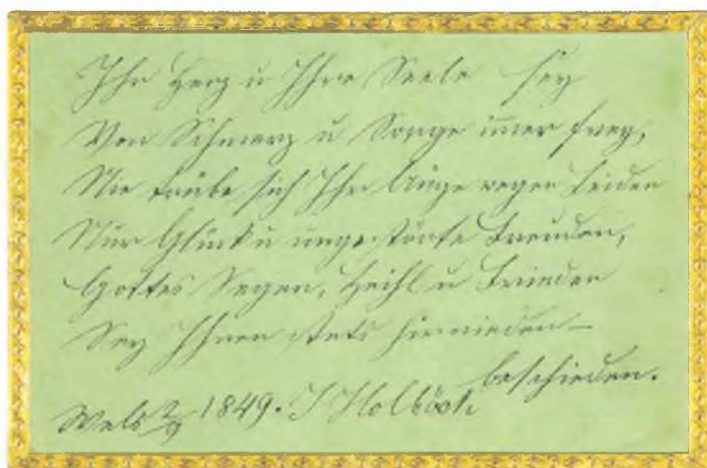 Ihr Herz u Ihre Seele sey
Von Schmerz u Sorge imer frey,
Nie trübe sich Ihr Auge wegen Leiden
Nur Glück u ungestörte Freuden,
Gottes Segen, Heihl u Frieden
Sey Ihnen stets hirnieden –
beschieden.
Wels 2/9 1849. J Holböck